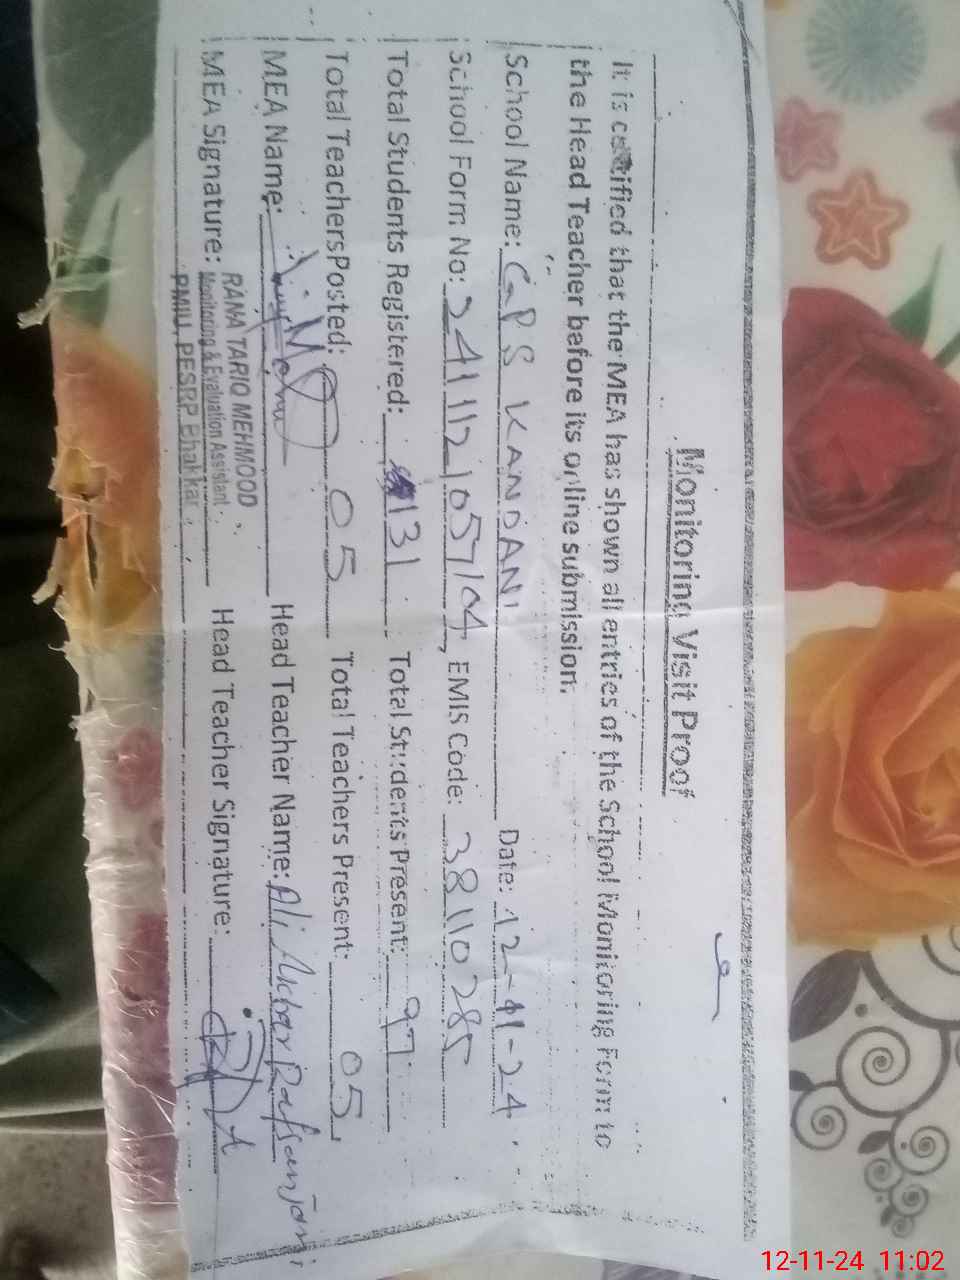 Monitoring Visit Proof
It is certified that the MEA has shown all entries of the School Monitoring Form to
the Head Teacher before its online submission.
School Name: GPS KANDANI Date: 12-11-24
School Form No: 2411121057104, EMIS Code: 38110285
Total Students Registered: 131 Total Students Present: 97
Total Teachers Posted: 05 Total Teachers Present: 05
MEA Name: Head Teacher Name: Ali Akbar Rafsanjani
MEA Signature: Head Teacher Signature:
RANA TARIQ MEHMOOD
Monitoring & Evaluation Assistant
PMIU, PESRP Bhakkar
12-11-24 11:02